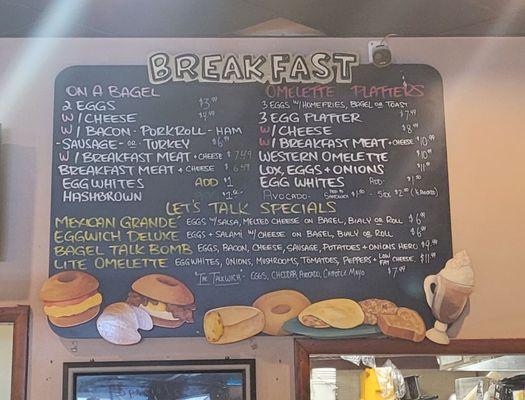 BREAKFAST
ON A BAGEL
2 EGGS $3.99
W/ CHEESE $4.99
W/ BACON - PORKROLL - HAM
- SAUSAGE - OR - TURKEY $6.99
W/ BREAKFAST MEAT + CHEESE $7.49
BREAKFAST MEAT + CHEESE $6.49
EGG WHITES ADD $1
HASHBROWN
OMELETTE PLATTERS
3 EGGS W/ HOMEFRIES, BAGEL OR TOAST
3 EGG PLATTER $7.99
W/ CHEESE $8.99
W/ BREAKFAST MEAT + CHEESE $10.99
WESTERN OMELETTE $10.99
LOX, EGGS + ONIONS $11.99
EGG WHITES ADD $1.50
AVOCADO ADD TO SANDWICH $1.50 - SIDE $2.50 (1/2 AVOCADO)
LET'S TALK SPECIALS
MEXICAN GRANDE EGGS W/ SALSA, MELTED CHEESE ON BAGEL, BIALY OR ROLL $6.99
EGGWICH DELUXE EGGS + SALAMI W/ CHEESE ON BAGEL, BIALY OR ROLL $6.99
BAGEL TALK BOMB EGGS, BACON, CHEESE, SAUSAGE, POTATOES + ONIONS HERO $9.99
LITE OMELETTE EGG WHITES, ONIONS, MUSHROOMS, TOMATOES, PEPPERS + LOW FAT CHEESE $11.99
"THE TALKWICH" EGGS, CHEDDAR, AVOCADO, CHIPOTLE MAYO $7.99